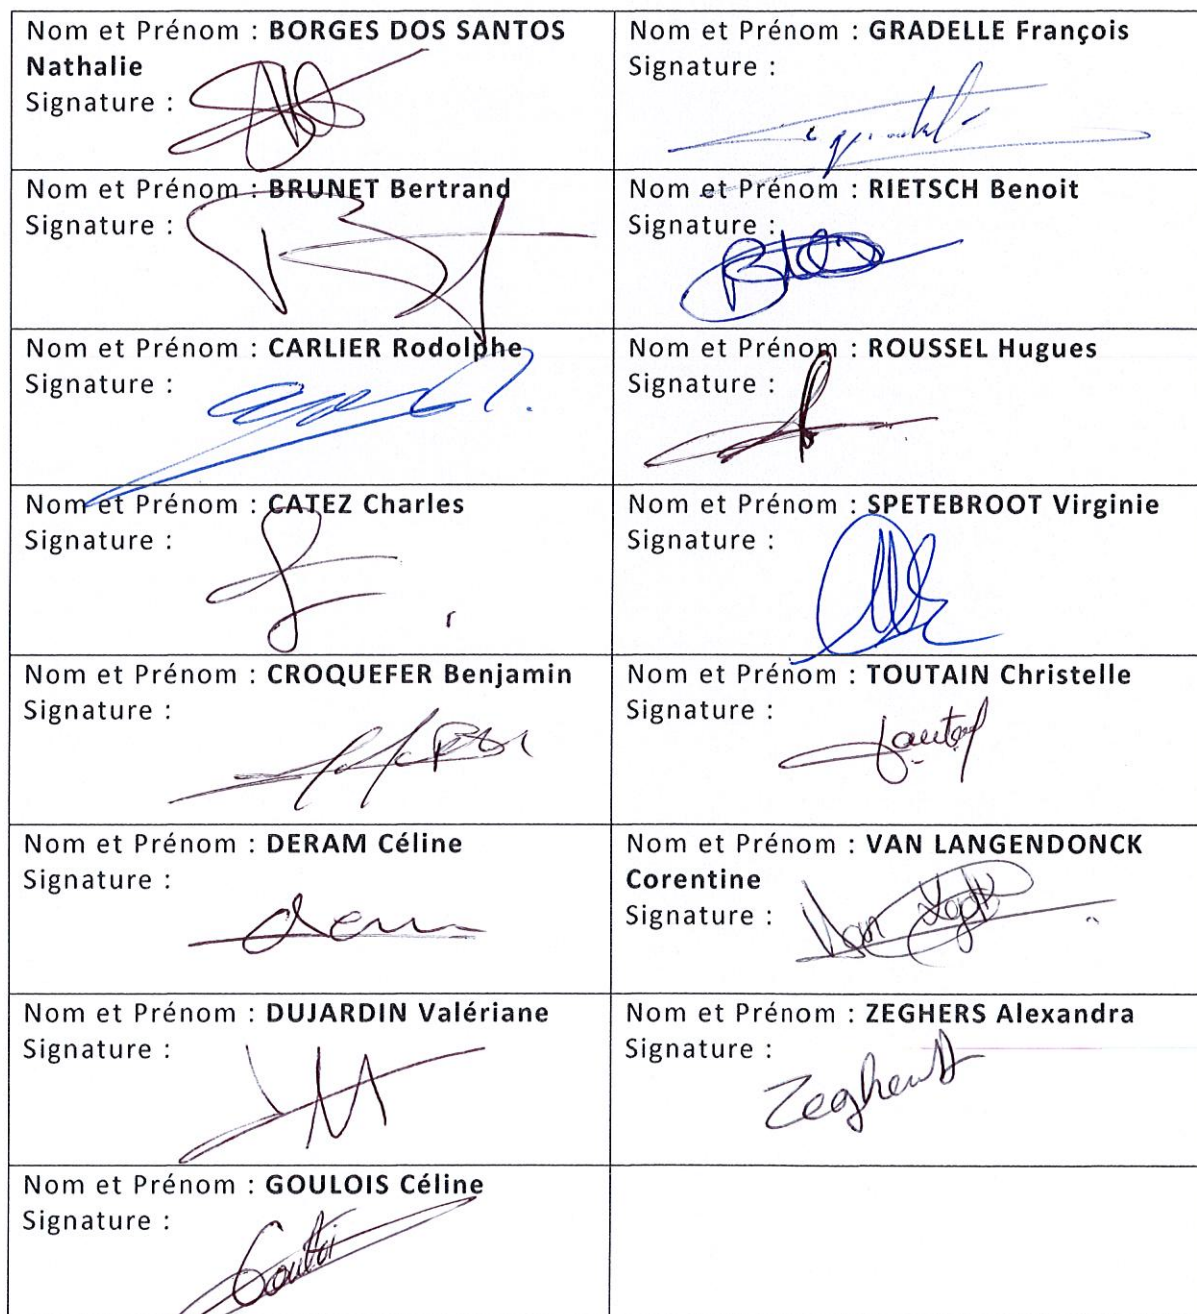 Nom et Prénom : BORGES DOS SANTOS
Nathalie
Signature :
Nom et Prénom : GRADELLE François
Signature :
Nom et Prénom : BRUNET Bertrand
Signature :
Nom et Prénom : RIETSCH Benoit
Signature :
Nom et Prénom : CARLIER Rodolphe
Signature :
Nom et Prénom : ROUSSEL Hugues
Signature :
Nom et Prénom : CATEZ Charles
Signature :
Nom et Prénom : SPETEBROOT Virginie
Signature :
Nom et Prénom : CROQUEFER Benjamin
Signature :
Nom et Prénom : TOUTAIN Christelle
Signature :
Nom et Prénom : DERAM Céline
Signature :
Nom et Prénom : VAN LANGENDONCK
Corentine
Signature :
Nom et Prénom : DUJARDIN Valériane
Signature :
Nom et Prénom : ZEGHERS Alexandra
Signature :
Nom et Prénom : GOULOIS Céline
Signature :